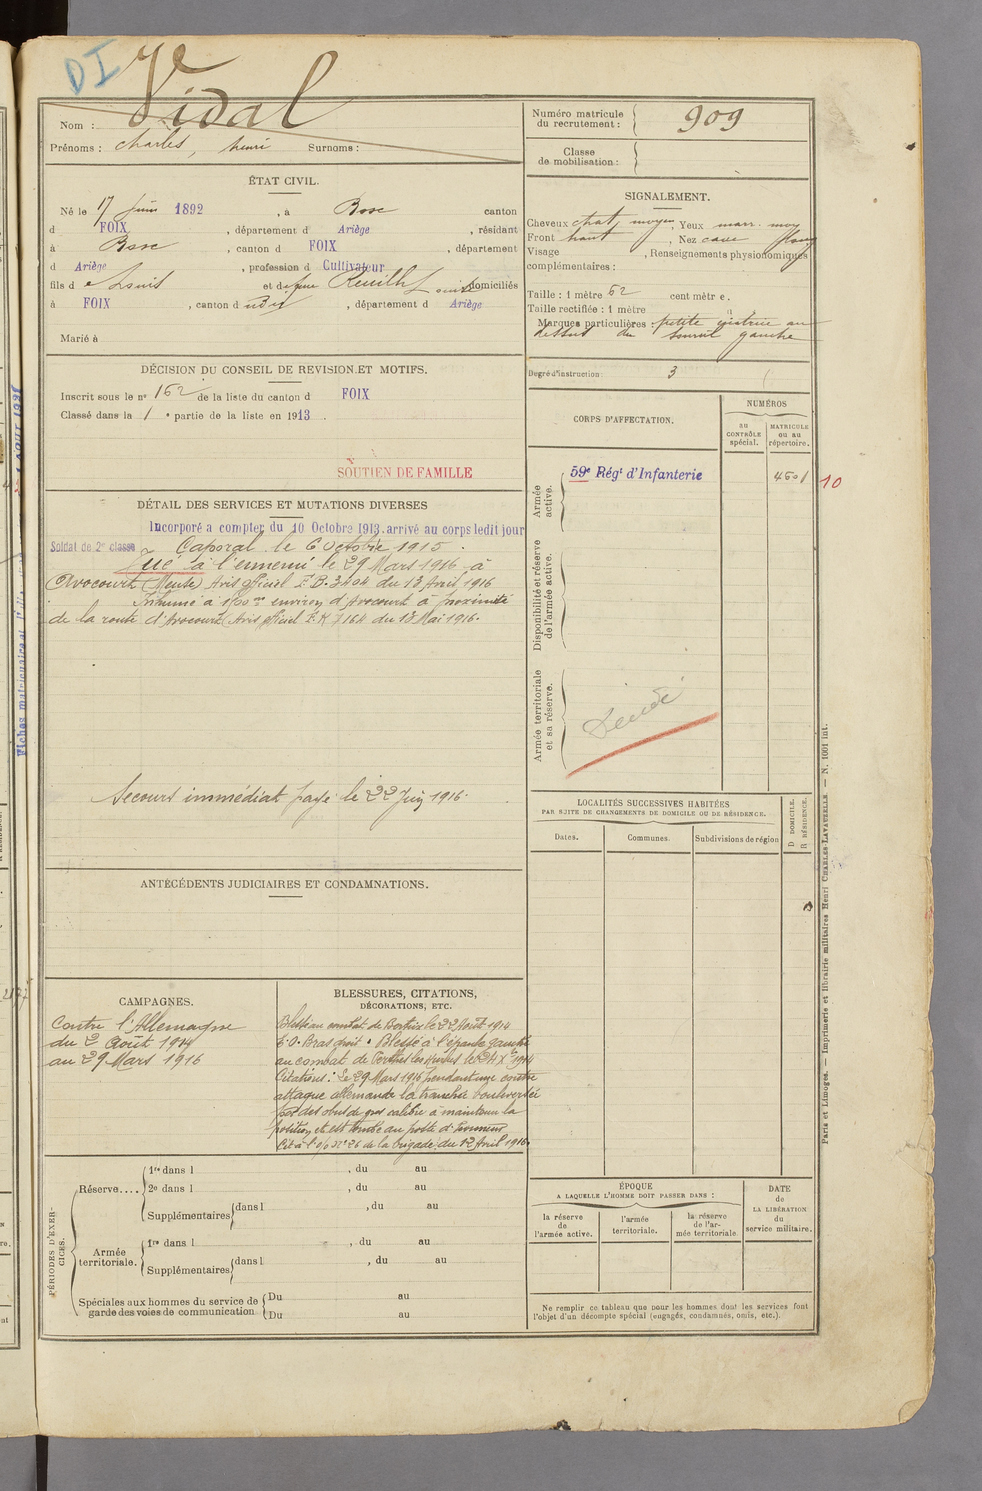 DI
Vidal
Nom :
Prénoms : Charles, henri Surnoms :
Numéro matricule
du recrutement : 909
Classe
de mobilisation :
ÉTAT CIVIL.
Né le 17 Juin 1892, à Bosc canton
d FOIX, département d Ariège, résidant
à Bosc, canton d FOIX, département
d Ariège, profession d Cultivateur
fils d e Louis et de feue Louise domiciliés
à FOIX, canton d udit, département d Ariège
Marié à
SIGNALEMENT.
Cheveux chat. moyen, Yeux marr. moy
Front haut, Nez cave
Visage , Renseignements physionomiques
complémentaires :
Taille : 1 mètre 62 cent mètr e.
Taille rectifiée : 1 mètre
Marques particulières : petite cicatrice au
dessus du sourcil gauche
Degré d'instruction : 3
DÉCISION DU CONSEIL DE REVISION ET MOTIFS.
Inscrit sous le nº 162 de la liste du canton d FOIX
Classé dans la 1 e partie de la liste en 1913.
SOUTIEN DE FAMILLE
DÉTAIL DES SERVICES ET MUTATIONS DIVERSES
Incorporé a compter du 10 Octobre 1913. arrivé au corps ledit jour
Soldat de 2e classe Caporal le 6 Octobre 1915.
Tué à l'ennemi le 29 Mars 1916 à
Avocourt (Meuse) Avis officiel F.B. 3404 du 13 Avril 1916
Inhumé à 1500 m environ d'Avocourt à proximité
de la route d'Avocourt (Avis officiel F.K 7164 du 18 Mai 1916.
Secours immédiat payé le 22 Juin 1916.
CORPS D'AFFECTATION.
NUMÉROS
AU
CONTRÔLE
spécial.
MATRICULE
ou au
répertoire.
Armée
active.
59e Régt d'Infanterie
4501
10
Disponibilité et réserve
de l'armée active.
Armée territoriale
et sa réserve.
LOCALITÉS SUCCESSIVES HABITÉES
PAR SUITE DE CHANGEMENTS DE DOMICILE OU DE RÉSIDENCE.
Dates.
Communes.
Subdivisions de région
D DOMICILE.
R RÉSIDENCE.
ANTÉCÉDENTS JUDICIAIRES ET CONDAMNATIONS.
CAMPAGNES.
Contre l'Allemagne
du 2 Août 1914
au 29 Mars 1916
BLESSURES, CITATIONS,
DÉCORATIONS, ETC.
Blessé au combat de Bertrix le 22 Août 1914
Bras droit. Blessé à l'épaule gauche
au combat de Perthes les Hurlus le 24 Xbre 1914
Citations : Le 29 Mars 1916 pendant une contre
attaque allemande la tranchée bouleversée
par des obus de gros calibre a maintenu la
position et est tombé au poste d'honneur
Cité à l'o/o Nº 26 de la brigade du 12 Avril 1916.
PÉRIODES D'EXER-
CICES.
Réserve....
1re dans l , du au
2e dans l , du au
Supplémentaires dans l , du au
Armée
territoriale.
1re dans l , du au
Supplémentaires dans l , du au
Spéciales aux hommes du service de
garde des voies de communication
Du au
Du au
ÉPOQUE
A LAQUELLE L'HOMME DOIT PASSER DANS :
la réserve
de
l'armée active.
l'armée
territoriale.
la réserve
de l'ar-
mée territoriale.
DATE
de
LA LIBÉRATION
du
service militaire.
Ne remplir ce tableau que pour les hommes dont les services font
l'objet d'un décompte spécial (engagés, condamnés, omis, etc.).
Paris et Limoges. — Imprimerie et librairie militaires Henri CHARLES-LAVAUZELLE. — N. 1001 int.